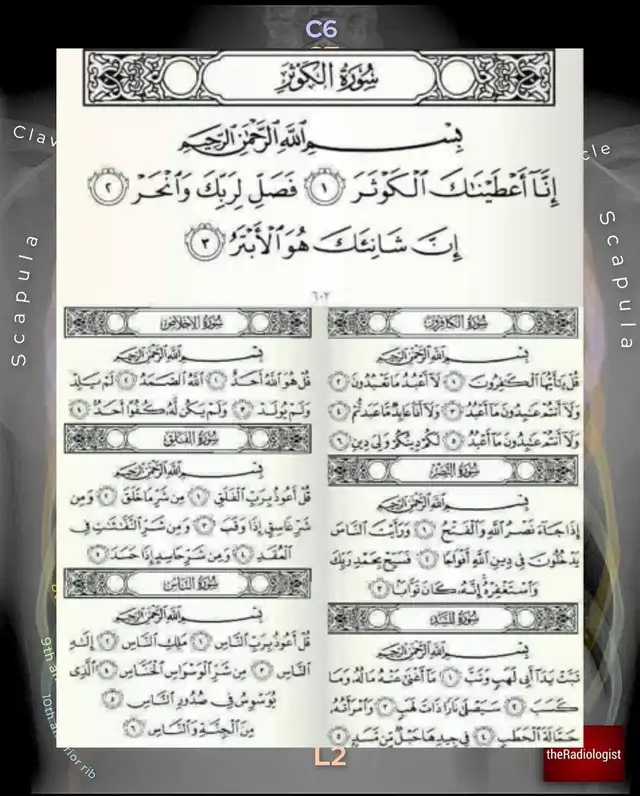 C6
Clav
cle
Scapula
Scapula
سُورَةُ الْكَوْثَرِ
بِسْمِ اللَّهِ الرَّحْمَٰنِ الرَّحِيمِ
إِنَّآ أَعْطَيْنَٰكَ ٱلْكَوْثَرَ ١ فَصَلِّ لِرَبِّكَ وَٱنْحَرْ ٢
إِنَّ شَانِئَكَ هُوَ ٱلْأَبْتَرُ ٣
٦٠٢
سُورَةُ الكَافِرُونَ
بِسْمِ اللَّهِ الرَّحْمَٰنِ الرَّحِيمِ
قُلْ يَٰٓأَيُّهَا ٱلْكَٰفِرُونَ ١ لَآ أَعْبُدُ مَا تَعْبُدُونَ ٢
وَلَآ أَنتُمْ عَٰبِدُونَ مَآ أَعْبُدُ ٣ وَلَآ أَنَا۠ عَابِدٌ مَّا عَبَدتُّمْ ٤
وَلَآ أَنتُمْ عَٰبِدُونَ مَآ أَعْبُدُ ٥ لَكُمْ دِينُكُمْ وَلِىَ دِينِ ٦
سُورَةُ النَّصْرِ
بِسْمِ اللَّهِ الرَّحْمَٰنِ الرَّحِيمِ
إِذَا جَآءَ نَصْرُ ٱللَّهِ وَٱلْفَتْحُ ١ وَرَأَيْتَ ٱلنَّاسَ
يَدْخُلُونَ فِى دِينِ ٱللَّهِ أَفْوَاجًا ٢ فَسَبِّحْ بِحَمْدِ رَبِّكَ
وَٱسْتَغْفِرْهُ إِنَّهُۥ كَانَ تَوَّابًۢا ٣
سُورَةُ المَسَدِ
بِسْمِ اللَّهِ الرَّحْمَٰنِ الرَّحِيمِ
تَبَّتْ يَدَآ أَبِى لَهَبٍ وَتَبَّ ١ مَآ أَغْنَىٰ عَنْهُ مَالُهُۥ وَمَا
كَسَبَ ٢ سَيَصْلَىٰ نَارًا ذَاتَ لَهَبٍ ٣ وَٱمْرَأَتُهُۥ
حَمَّالَةَ ٱلْحَطَبِ ٤ فِى جِيدِهَا حَبْلٌ مِّن مَّسَدٍۭ ٥
سُورَةُ الإِخْلَاصِ
بِسْمِ اللَّهِ الرَّحْمَٰنِ الرَّحِيمِ
قُلْ هُوَ ٱللَّهُ أَحَدٌ ١ ٱللَّهُ ٱلصَّمَدُ ٢ لَمْ يَلِدْ
وَلَمْ يُولَدْ ٣ وَلَمْ يَكُن لَّهُۥ كُفُوًا أَحَدٌۢ ٤
سُورَةُ الفَلَقِ
بِسْمِ اللَّهِ الرَّحْمَٰنِ الرَّحِيمِ
قُلْ أَعُوذُ بِرَبِّ ٱلْفَلَقِ ١ مِن شَرِّ مَا خَلَقَ ٢ وَمِن
شَرِّ غَاسِقٍ إِذَا وَقَبَ ٣ وَمِن شَرِّ ٱلنَّفَّٰثَٰتِ فِى
ٱلْعُقَدِ ٤ وَمِن شَرِّ حَاسِدٍ إِذَا حَسَدَ ٥
سُورَةُ النَّاسِ
بِسْمِ اللَّهِ الرَّحْمَٰنِ الرَّحِيمِ
قُلْ أَعُوذُ بِرَبِّ ٱلنَّاسِ ١ مَلِكِ ٱلنَّاسِ ٢ إِلَٰهِ
ٱلنَّاسِ ٣ مِن شَرِّ ٱلْوَسْوَاسِ ٱلْخَنَّاسِ ٤ ٱلَّذِى
يُوَسْوِسُ فِى صُدُورِ ٱلنَّاسِ ٥
مِنَ ٱلْجِنَّةِ وَٱلنَّاسِ ٦
9th an
10th an
rior rib
L2
theRadiologist